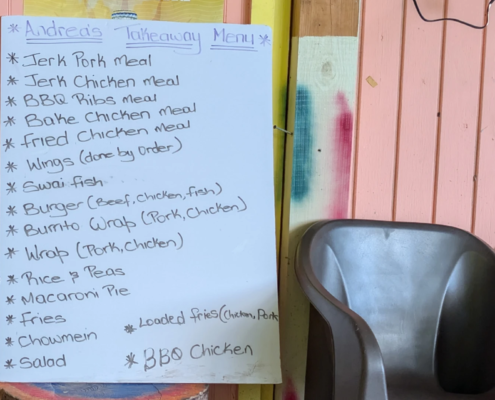 * Andrea's Takeaway Menu *
* Jerk Pork meal
* Jerk Chicken meal
* BBQ Ribs meal
* Bake Chicken meal
* Fried Chicken meal
* Wings (done by order)
* Swai fish
* Burger (Beef, chicken, fish)
* Burrito Wrap (Pork, Chicken)
* Wrap (Pork, Chicken)
* Rice & Peas
* Macaroni Pie
* Fries
* Loaded fries (Chicken, Pork
* Chowmein
* BBQ Chicken
* Salad